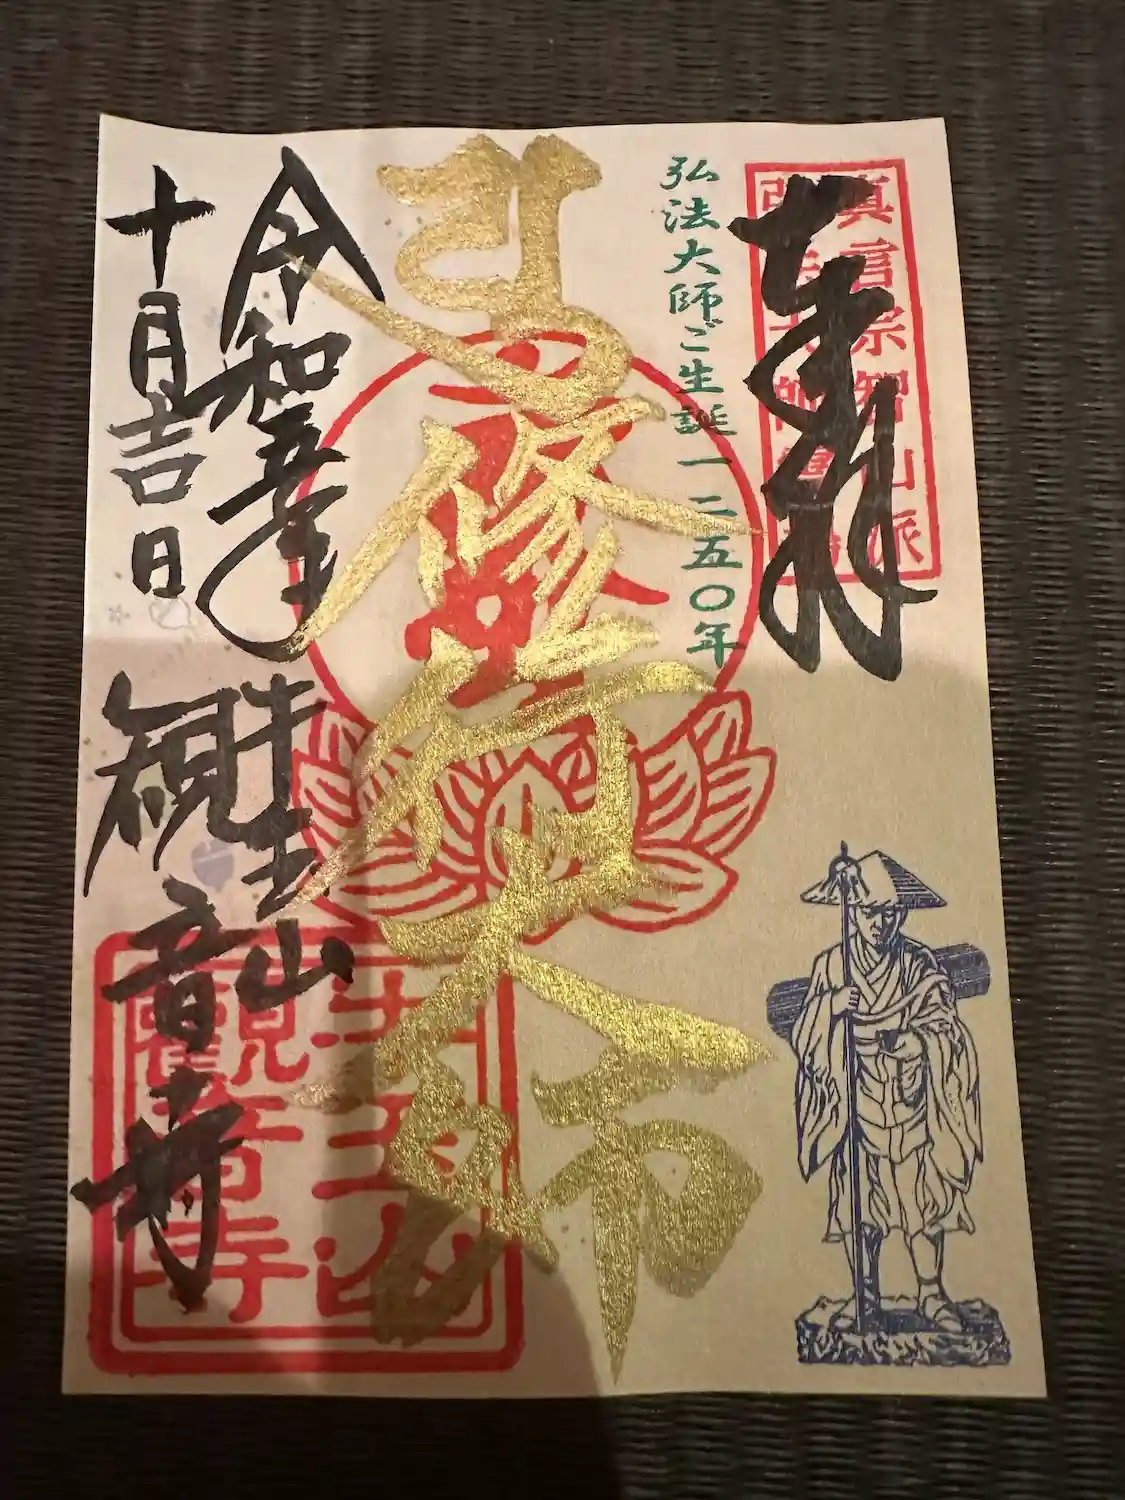 真言宗智山派
奉拝
弘法大師ご生誕一二五〇年
修行大師
令和五年
十月吉日
牛王山
観音寺
牛王山
觀音寺